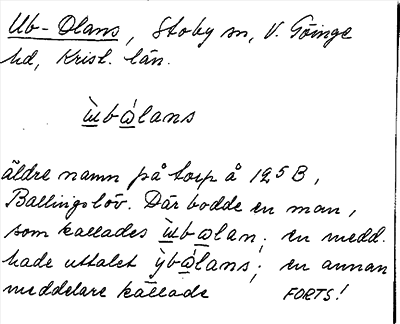 Ub-Olans, Stoby sn, V. Göinge
hd, Krist. län.
ùbὼlans
äldre namn på torp å 12⁵ B,
Ballingslöv. Där bodde en man,
som kallades ùbὼlan; en medd.
hade uttalet ỳbὼlans; en annan
meddelare kallade FORTS!